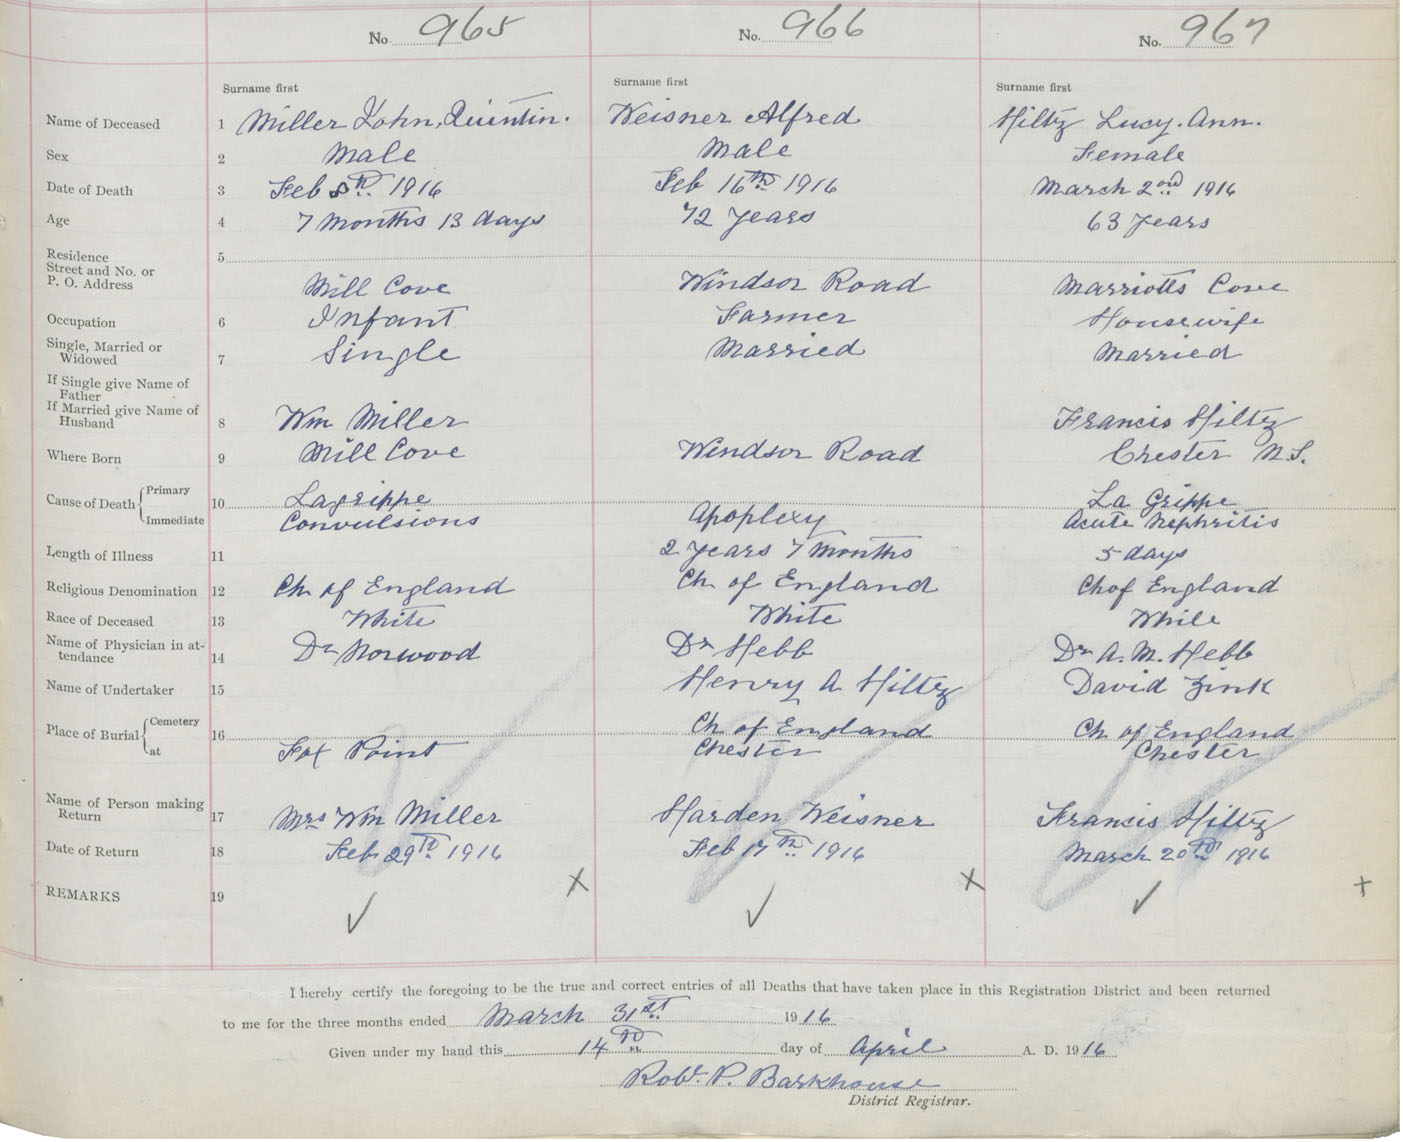 No. 965 No. 966 No. 967
Surname first Surname first Surname first
Name of Deceased 1 Miller John, Quintin. Weisner Alfred Hiltz Lucy. Ann.
Sex 2 Male Male Female
Date of Death 3 Feb 8th 1916 Feb 16th 1916 March 2nd 1916
Age 4 7 Months 13 days 72 Years 63 Years
Residence 5
Street and No. or
P. O. Address Mill Cove Windsor Road Marriotts Cove
Occupation 6 Infant Farmer Housewife
Single, Married or
Widowed 7 Single Married Married
If Single give Name of
Father
If Married give Name of
Husband 8 Wm Miller Francis Hiltz
Where Born 9 Mill Cove Windsor Road Chester N.S.
Cause of Death Primary 10 Lagrippe La Grippe
Immediate Convulsions Apoplexy Acute Nephritis
Length of Illness 11 2 Years 7 Months 5 days
Religious Denomination 12 Ch of England Ch of England Ch of England
Race of Deceased 13 White White White
Name of Physician in at-
tendance 14 Dr Norwood Dr Hebb Dr A. M. Hebb
Name of Undertaker 15 Henry A Hiltz David Zink
Place of Burial Cemetery 16 Ch of England Ch of England
at Fox Point Chester Chester
Name of Person making
Return 17 Mrs Wm Miller Harden Weisner Francis Hiltz
Date of Return 18 Feb 29th 1916 Feb 17th 1916 March 20th 1916
REMARKS 19
I hereby certify the foregoing to be the true and correct entries of all Deaths that have taken place in this Registration District and been returned
to me for the three months ended March 31st 1916
Given under my hand this 14th day of April A. D. 1916
Robt. P. Barkhouse
District Registrar.